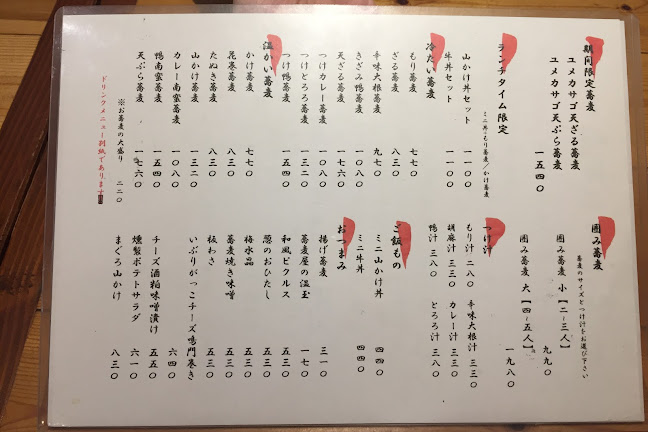 期間限定蕎麦
ユメカサゴ天ざる蕎麦
ユメカサゴ天ぷら蕎麦
一五四〇
ランチタイム限定
ミニ丼+もり蕎麦/かけ蕎麦
山かけ丼セット 一一〇〇
牛丼セット 一一〇〇
冷たい蕎麦
もり蕎麦 七七〇
ざる蕎麦 八三〇
辛味大根蕎麦 九七〇
きざみ鴨蕎麦 一〇八〇
天ざる蕎麦 一七六〇
つけカレー蕎麦 一〇八〇
つけとろろ蕎麦 一三二〇
つけ鴨蕎麦 一五四〇
温かい蕎麦
かけ蕎麦 七七〇
花巻蕎麦 八三〇
たぬき蕎麦 八三〇
山かけ蕎麦 一三二〇
カレー南蛮蕎麦 一〇八〇
鴨南蛮蕎麦 一五四〇
天ぷら蕎麦 一七六〇
※お蕎麦の大盛り 二二〇
ドリンクメニュー別紙であります
囲み蕎麦
蕎麦のサイズとつけ汁をお選び下さい
囲み蕎麦 小【二~三人】
九九〇
囲み蕎麦 大【四~五人】
一九八〇
つけ汁
もり汁 二八〇 辛味大根汁 三三〇
胡麻汁 三三〇 カレー汁 三三〇
鴨汁 三八〇 とろろ汁 三八〇
ご飯もの
ミニ山かけ丼 四四〇
ミニ牛丼 四四〇
おつまみ
揚げ蕎麦 三一〇
蕎麦屋の温玉 一七〇
和風ピクルス 五三〇
葱のおひたし 五三〇
梅水晶 五三〇
蕎麦焼き味噌 五三〇
板わさ 五三〇
いぶりがっこチーズ鳴門巻き 六四〇
チーズ酒粕味噌漬け 五五〇
燻製ポテトサラダ 六一〇
まぐろ山かけ 八三〇